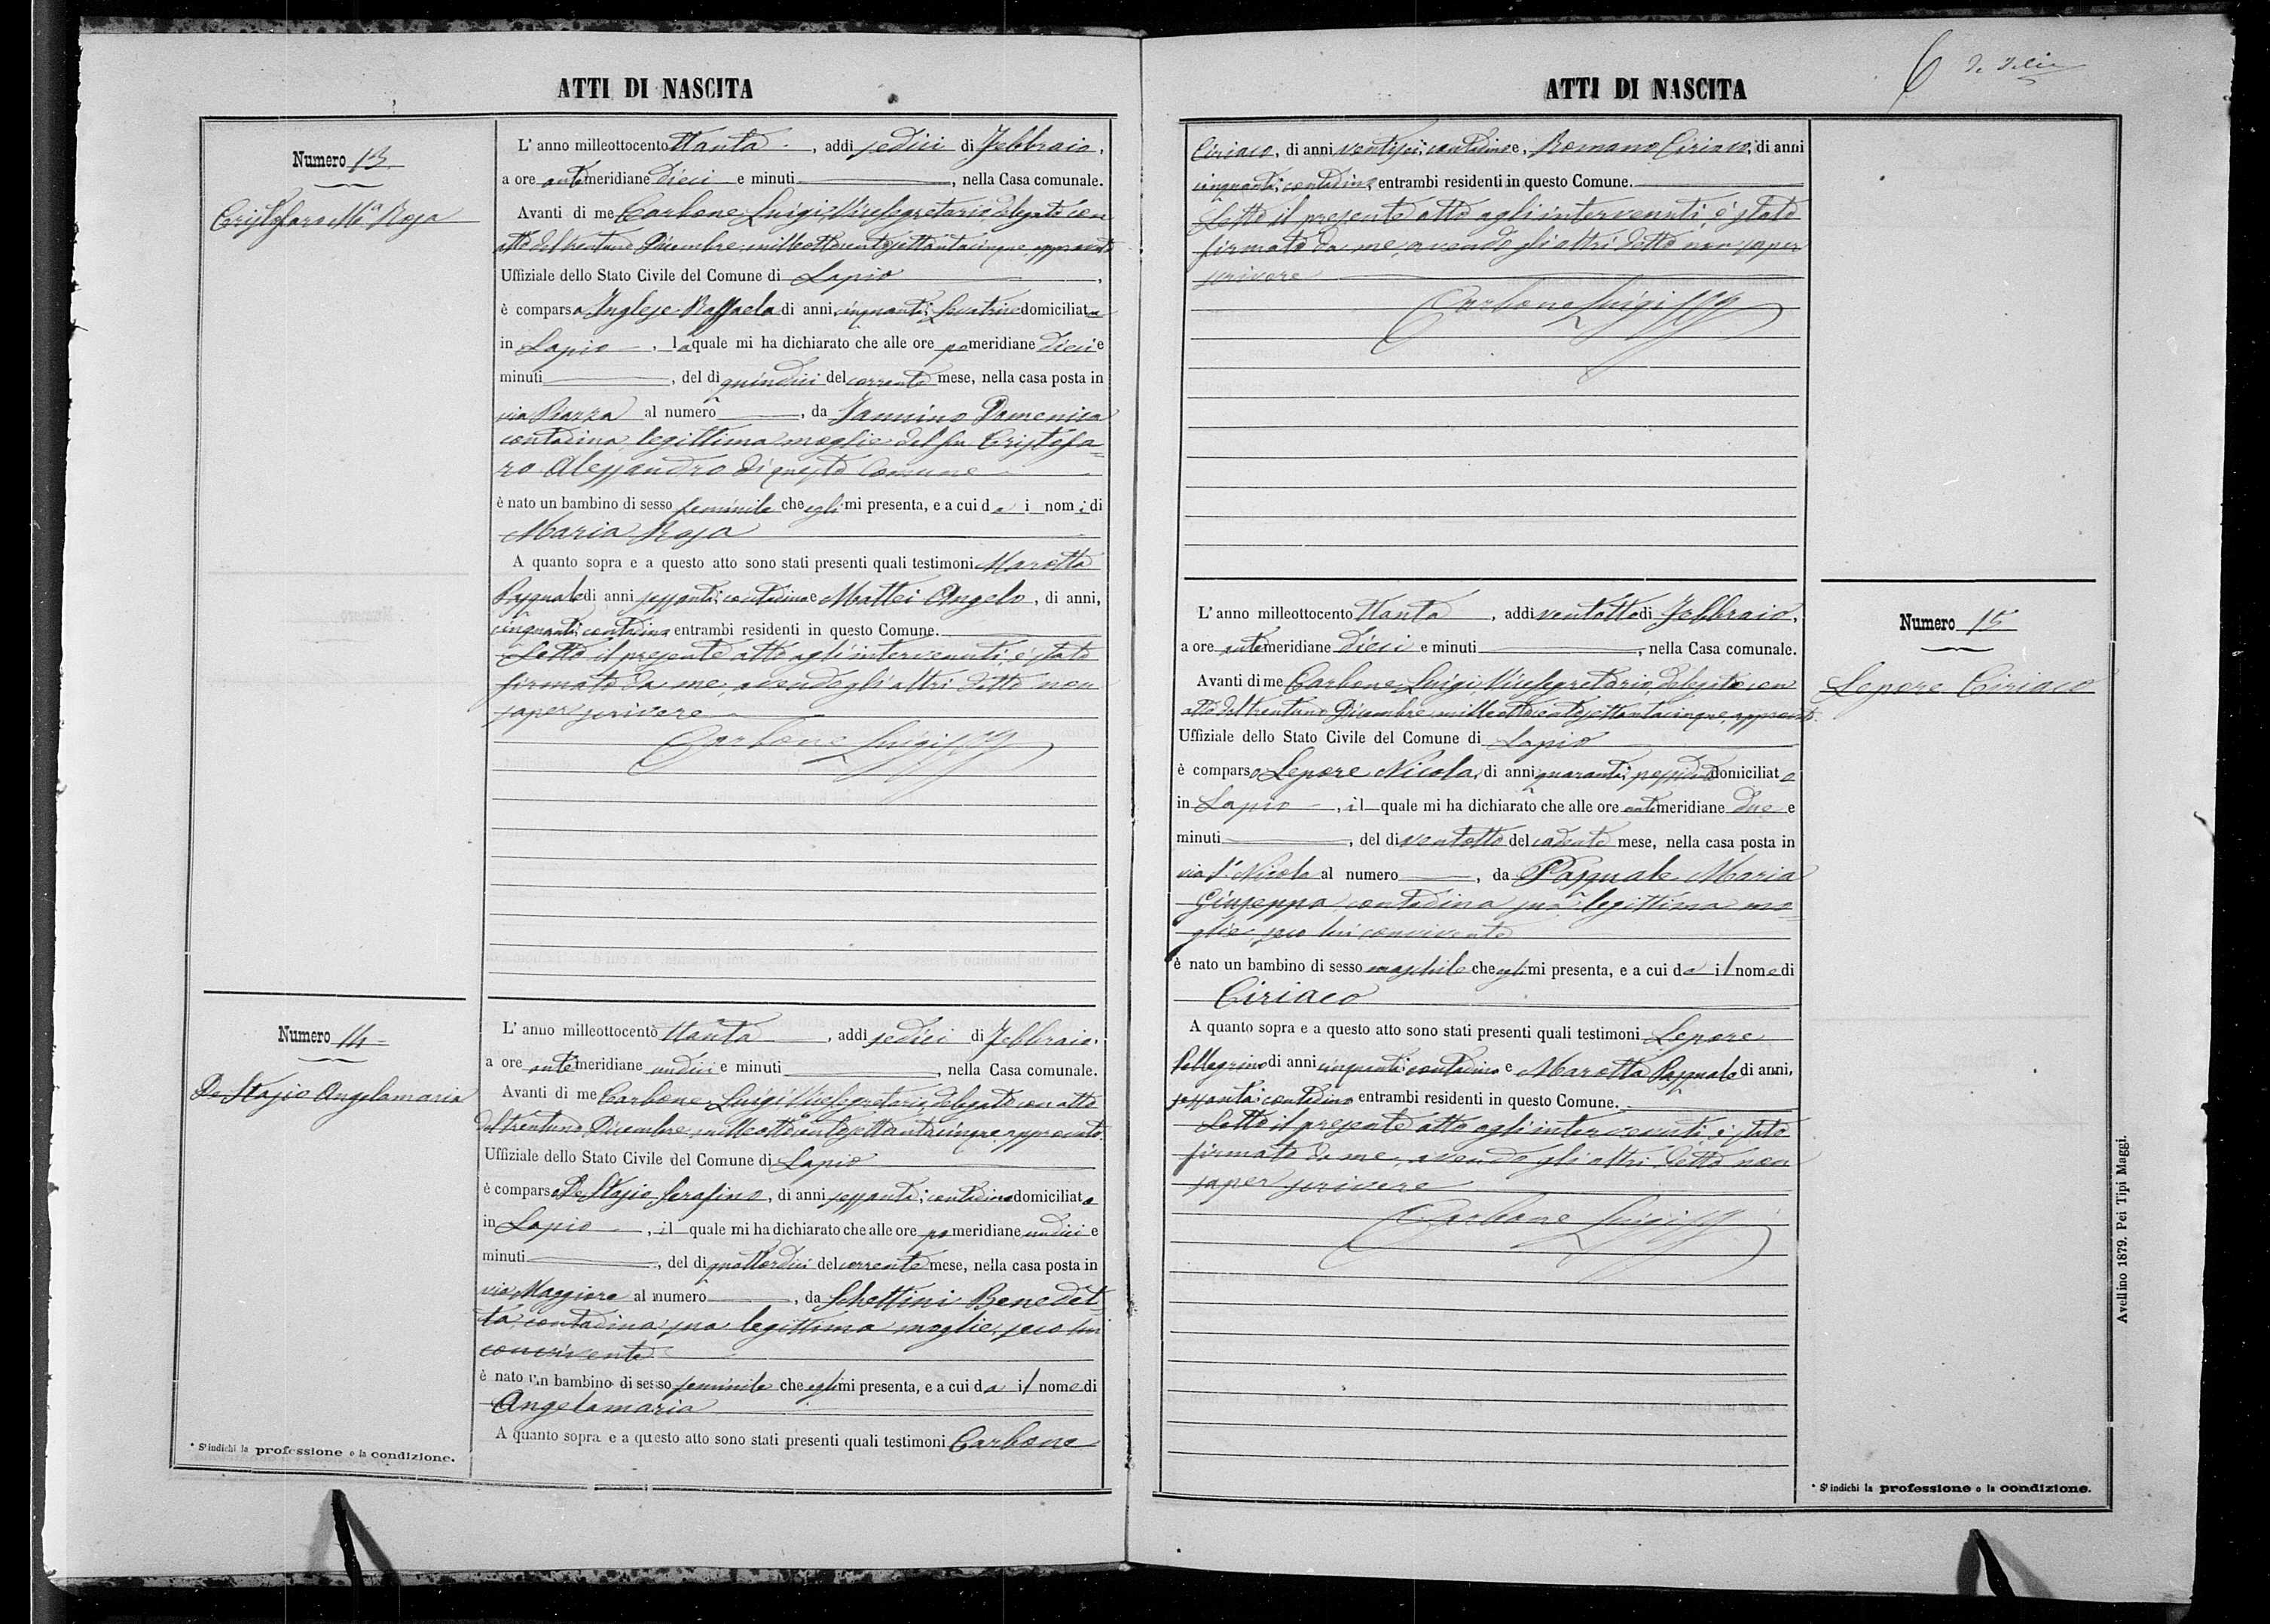 ATTI DI NASCITA
Numero 13
Cristofaro Mª Rosa
L' anno milleottocento ttanta , addì sedici di Febbraio,
a ore antimeridiane dieci e minuti , nella Casa comunale.
Avanti di me Carbone Luigi, Vicesegretario delegato con
atto del trentuno Dicembre milleottocentosettantacinque, approvato
Uffiziale dello Stato Civile del Comune di Lapio ,
è comparsa Inglese Raffaela di anni cinquanta, Levatrice domiciliata
in Lapio , la quale mi ha dichiarato che alle ore pomeridiane dieci e
minuti , del dì quindici del corrente mese, nella casa posta in
via Piazza al numero , da Iannino Domenica
contadina legittima moglie del fu Cristofa=
ro Alessandro di questo Comune
è nato un bambino di sesso feminile che egli mi presenta, e a cui da i nomi di
Maria Rosa
A quanto sopra e a questo atto sono stati presenti quali testimoni Marotta
Pasquale di anni sessanta, contadino e Mattei Angelo, di anni,
cinquanta, contadino entrambi residenti in questo Comune.
Letto il presente atto agli intervenuti, è stato
firmato da me, avendo gli altri detto non
saper scrivere
Carbone Luigi
Numero 14
De Stasio Angelamaria
L' anno milleottocento ttanta , addì sedici di Febbraio,
a ore antimeridiane undici e minuti , nella Casa comunale.
Avanti di me Carbone Luigi Vicesegretario, delegato con atto
del trentuno Dicembre milleottocentosettantacinque approvato
Uffiziale dello Stato Civile del Comune di Lapio
è comparso De Stasio Serafino, di anni sessanta, contadino domiciliato
in Lapio , il quale mi ha dichiarato che alle ore pomeridiane undici e
minuti , del dì quattordici del corrente mese, nella casa posta in
via Maggiore al numero , da Schettini Benedet=
ta, contadina sua legittima moglie, seco lui
convivente
è nato un bambino di sesso feminile che egli mi presenta, e a cui da il nome di
Angelamaria
A quanto sopra e a questo atto sono stati presenti quali testimoni Carbone
* S'indichi la professione o la condizione.
ATTI DI NASCITA
6
Ciriaco, di anni ventisei, contadino e, Romano Ciriaco, di anni
cinquanta, contadino, entrambi residenti in questo Comune.
Letto il presente atto agli intervenuti, è stato
firmato da me, avendo gli altri detto non saper
scrivere
Carbone Luigi
L' anno milleottocento ttanta , addì ventotto di Febbraio,
a ore antimeridiane dieci e minuti , nella Casa comunale.
Avanti di me Carbone Luigi, Vicesegretario, delegato con
atto del trentuno Dicembre milleottocentosettantacinque, approvato
Uffiziale dello Stato Civile del Comune di Lapio
è comparso Lepore Nicola, di anni quaranta, possidente domiciliato
in Lapio , il quale mi ha dichiarato che alle ore antimeridiane due e
minuti , del dì ventotto del cadente mese, nella casa posta in
via S. Nicola al numero , da Pasquale Maria
Giuseppa, contadina sua legittima mo=
glie, seco lui convivente
è nato un bambino di sesso maschile che egli mi presenta, e a cui da il nome di
Ciriaco
A quanto sopra e a questo atto sono stati presenti quali testimoni Lepore
Pellegrino di anni cinquanta contadino e Marotta Pasquale di anni,
sessanta, contadino entrambi residenti in questo Comune.
Letto il presente atto agli intervenuti, è stato
firmato da me, avendo gli altri detto non
saper scrivere
Carbone Luigi
Numero 15
Lepore Ciriaco
* S'indichi la professione o la condizione.
Avellino 1879. Pei Tipi Maggi.